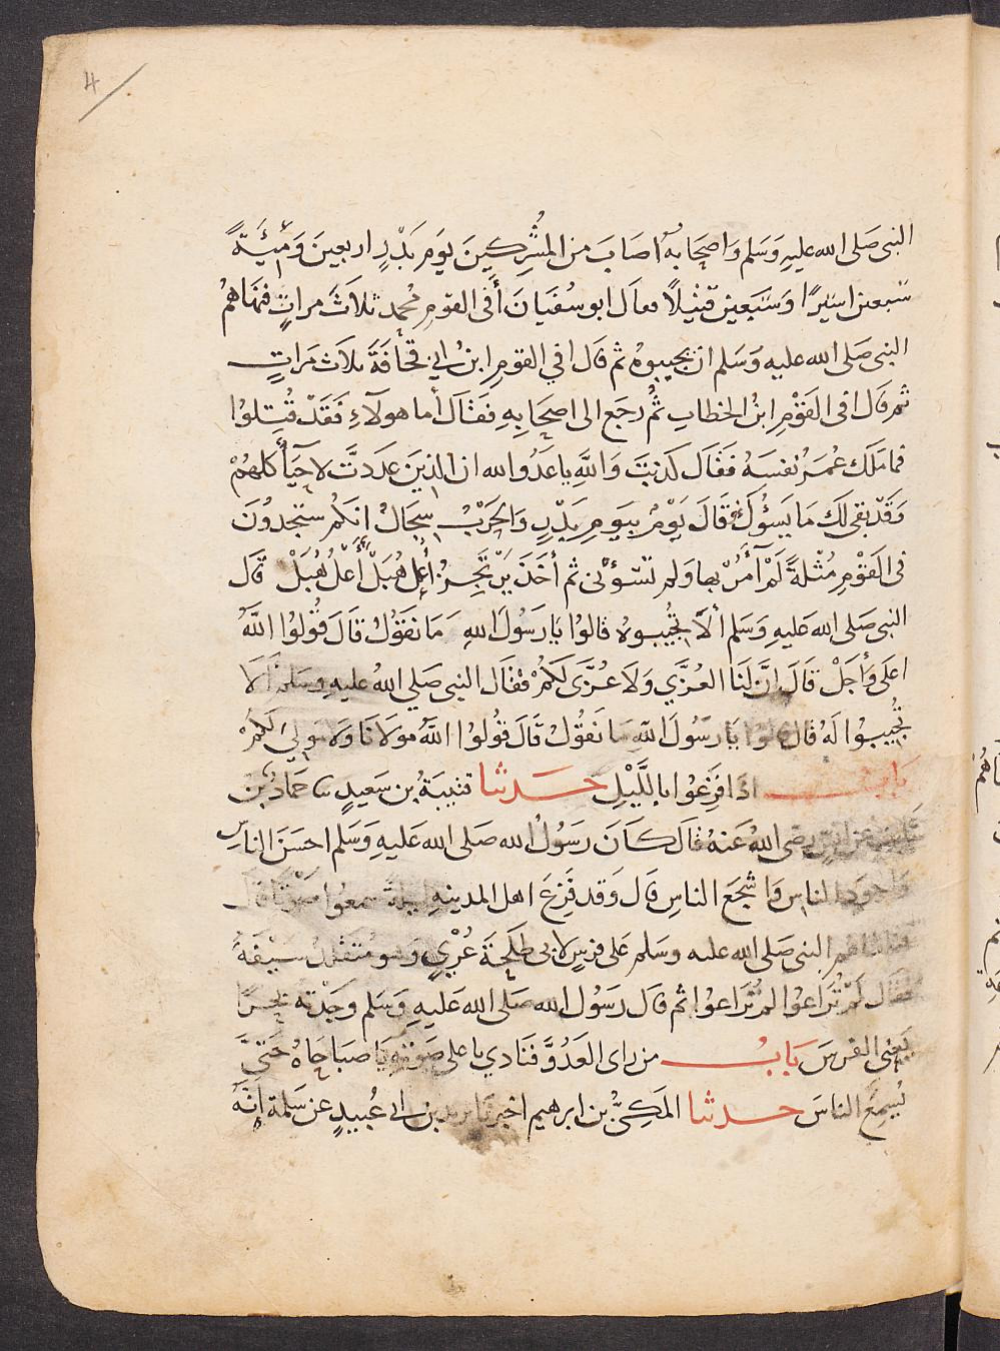 4
النبي صَلى الله عليهِ وَسَلم وَاصحَابهُ اصَابَ من المشُرِكينَ يوَم بَدْرٍ اربعينَ وَمِئَةً
سَبعين اسَيرًا وَسَبعِين قتيْلاً فعال ابو سُفيَانَ أَفى القومِ مُحمد ثلاَثَ مراتٍ فنهَاهمُ
النبى صَلى الله عليه وَسَلم ان يجيبوهُ ثم قال افي القومِ ابن ابي قحُافَةَ ثلاث مَراتٍ
ثم قال افى القَوْمِ ابنُ الخطابِ ثُمُ رجَع الى اصحَابِهِ فقاَلَ أما هولآءِ فَقَدْ قُتِلوُا
فما مَلَك عُمرُ نفسَهُ فقَالَ كذبتَ وَاللَّهِ ياعَدُو الله ان الذينَ عدَدتَّ لاَحيَآ كلهمُ
وَقَدْ بقى لكَ مَا يَسؤُكَ فقَالَ يَوْمُ بيَومِ بَدْرٍ وَالحَرْبُ سِجَالٌ انكم ستجدُونَ
في القَوْمِ مُثلةً لمْ آمُرْ بها وَلم تسُؤنى ثم أخَذ يَرْتجِزُ أعْلُ هُبَلْ أُعْلُ هُبَلْ قال
النبى صَلى الله عَليهِ وَسَلم ألاَ تُجيُبوهُ قالوُا يَا رَسُولَ اللهِ مَا نقوُلُ قَالَ قُولوُا اللَّهُ
اعلَى وَأجَلْ قَالَ إنَّ لنَا العُزَّي وَلاَ عُزَّى لَكمُ فقَال النبى صَلي اللهُ عليهِ وسَلم ألاَ
تُجيِبوُا لَهُ قال قالوُا يَا رسُولَ اللهِ مَا نَقوُلُ قَالَ قوُلوُا اللَّهُ مَوْلاَنَا وَلاَ مَولىَ لكُمُ
بَابُ اذَا فزِعُوا باللَّيلِ حَدثنا قتيبَةُ بن سَعيدٍ ثنا حَمادُ بن
ثابتٍ عن انسٍ رضى اللهُ عَنهُ قال كاَنَ رسَوُلُ الله صَلى الله عَليهِ وَسَلم احسَنَ الناسِ
وَاجوَدَ الناسِ وَاشجَعَ الناسِ قال وَقد فزِعَ اهل المدينهِ ليلةً سَمِعوُا صَوْتًا قالَ
فتلقاهم النبى صَلى الله عليه وسَلم عَلى فرسٍ لابى طلحَةَ عُرْيٍ وَهو مُتقَلدُ سَيْفَهُ
فقَال لمْ تُرَاعوُا لم تُرَاعوُا ثم قال رَسُول الله صَلى الله عَليهِ وَسَلم وجَدْته بحرًا
يَعنى الفرسَ بَابُ من راى العَدُوَّ فنَادي باعلى صَوتهِ يَا صبَاحَاهُ حَتىَّ
يُسِمعَ الناسَ حدثنا المَكِىُّ بن ابرهيم اخبرنَا يزيد بن ابى عُبيدٍ عن سَلمة إنهُ